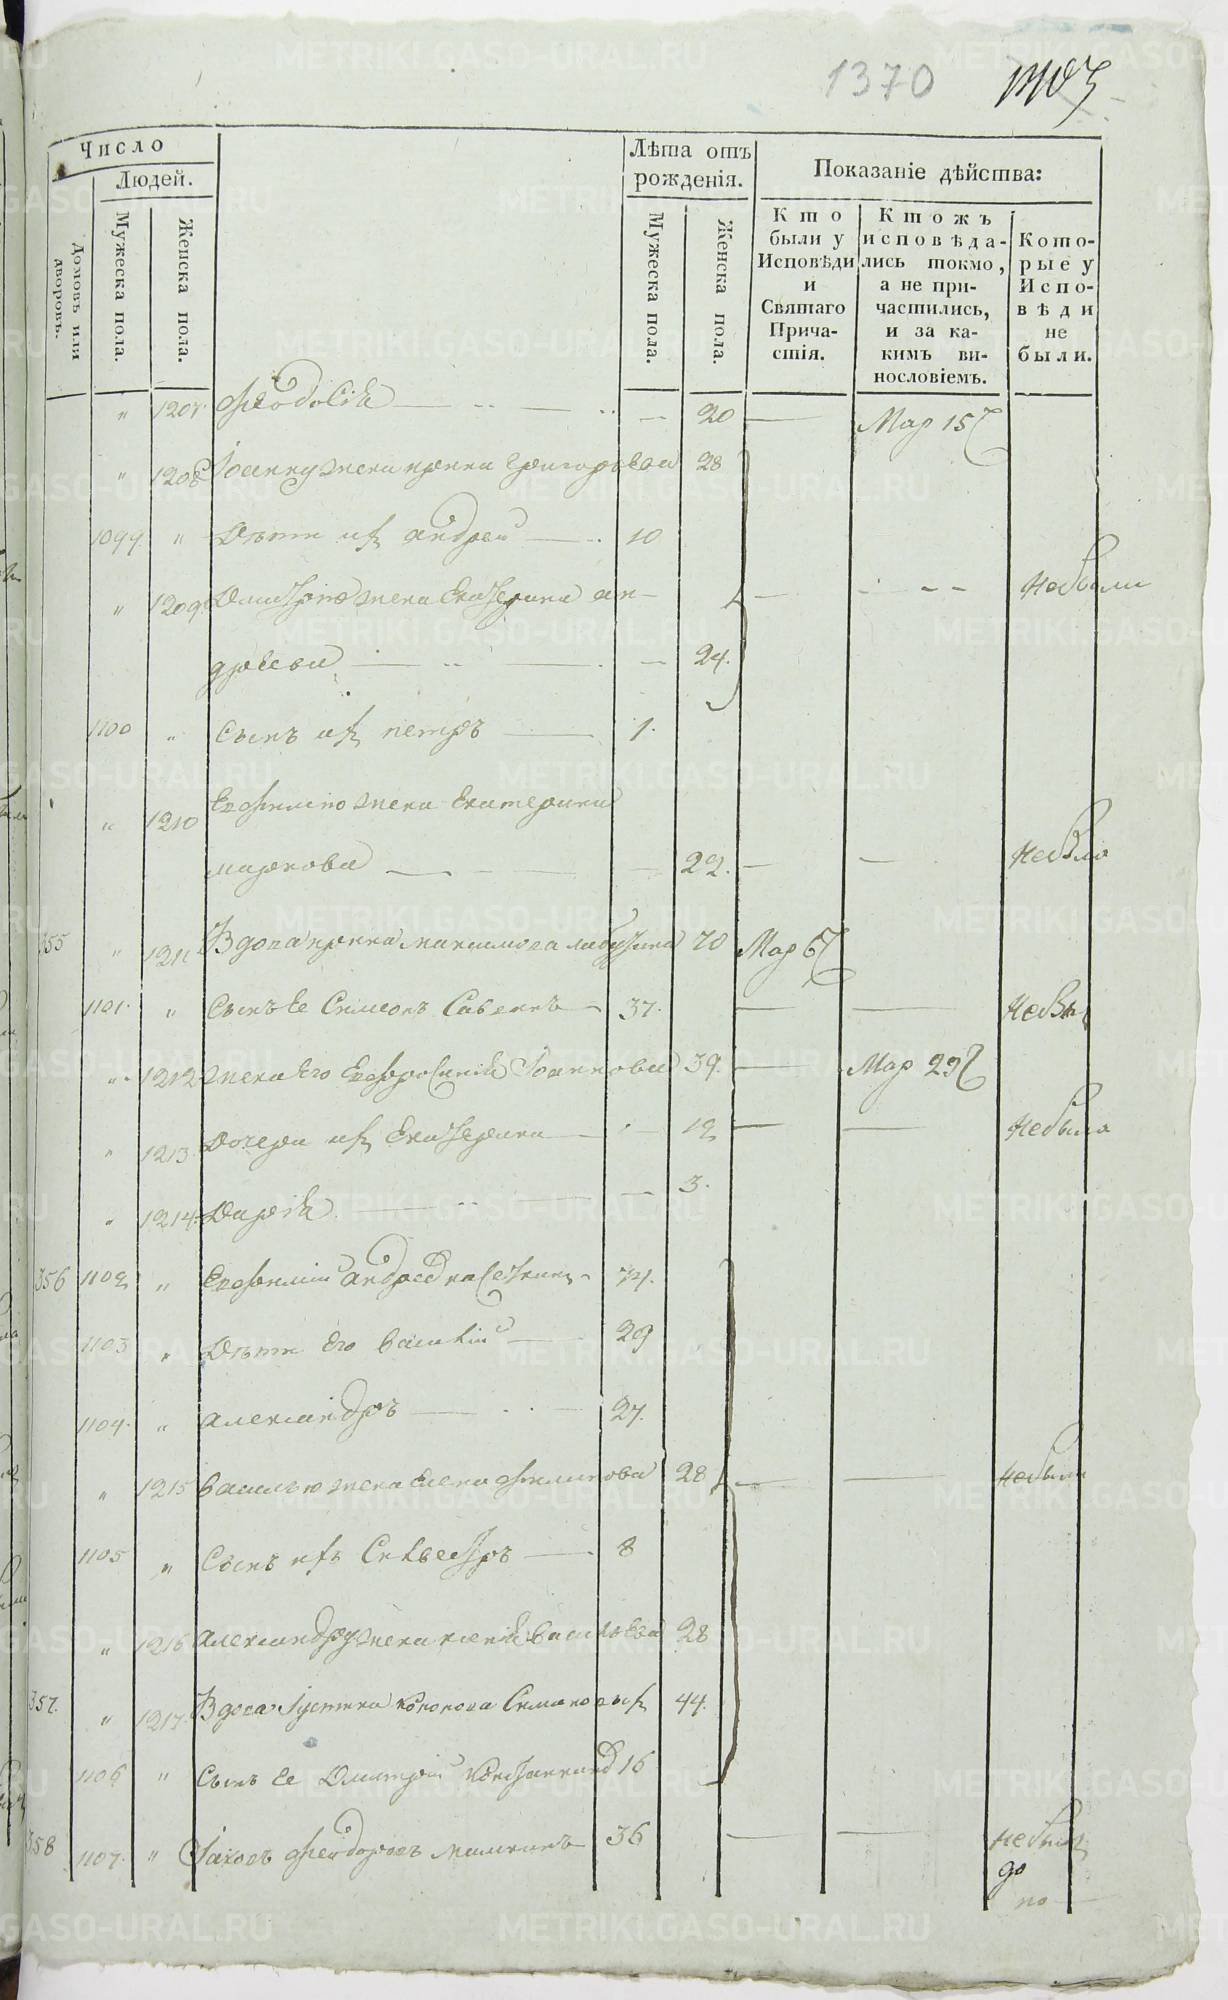 1370
Число
Людей.
Домовъ или дворовъ.
Мужеска пола.
Женска пола.
Лѣта отъ рожденія.
Мужеска пола.
Женска пола.
Показаніе дѣйства:
Кто были у Исповѣди и Святаго Причастія.
Ктожъ исповѣдались токмо, а не причастились, и за какимъ винословіемъ.
Которые у Исповѣди не были.
" 1207. Феодосія — 20 — Мар 15
" 1208 Іоанну жена ирина григорьева 28
1099 " Дѣти их андрей — 10
" 1209 Димитрію жена Екатерина ан- — небыли
дреева — 24.
1100 " Сынъ их петръ — 1.
" 1210 Евфимію жена Екатерина
маркова — 22. — небыла
355 " 1211 Вдова ирина максимова 70 Мар 6
1101. " Сынъ Ее Симеонъ Савинъ — 37. —
" 1212 жена Его Евфросинія Іоаннова 39. — Мар 29
" 1213 Дочери их Екатерина — 12 — небыла
" 1214 Дарія — 3.
356 1102 " Евфимій андреев — 74.
1103 " Дѣти Его василій — 29
1104. " александръ — 27.
" 1215 василью жена Елена филипова 28 — небыли
1105 " Сынъ ихъ Сильвестръ — 8
" 1216 александру жена ксенія васильева 28
357. " 1217. Вдова Іустина 44.
1106 " Сынъ Ее Димитрій 16
358 1107. " Іаковъ феодоровъ 36 —
до
по
METRIKI.GASO-URAL.RU